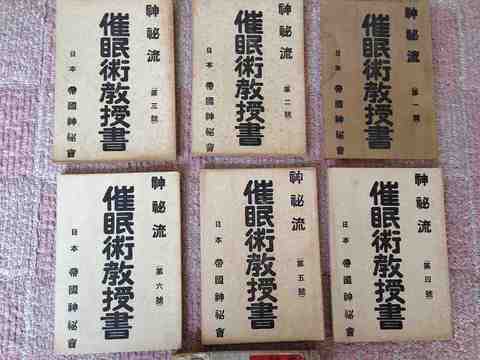 神祕流
第一號
催眠術教授書
日本 帝國神祕會
神祕流
第二號
催眠術教授書
日本 帝國神祕會
神祕流
第三號
催眠術教授書
日本 帝國神祕會
神祕流
(第四號)
催眠術教授書
日本 帝國神祕會
神祕流
(第五號)
催眠術教授書
日本 帝國神祕會
神祕流
(第六號)
催眠術教授書
日本 帝國神祕會